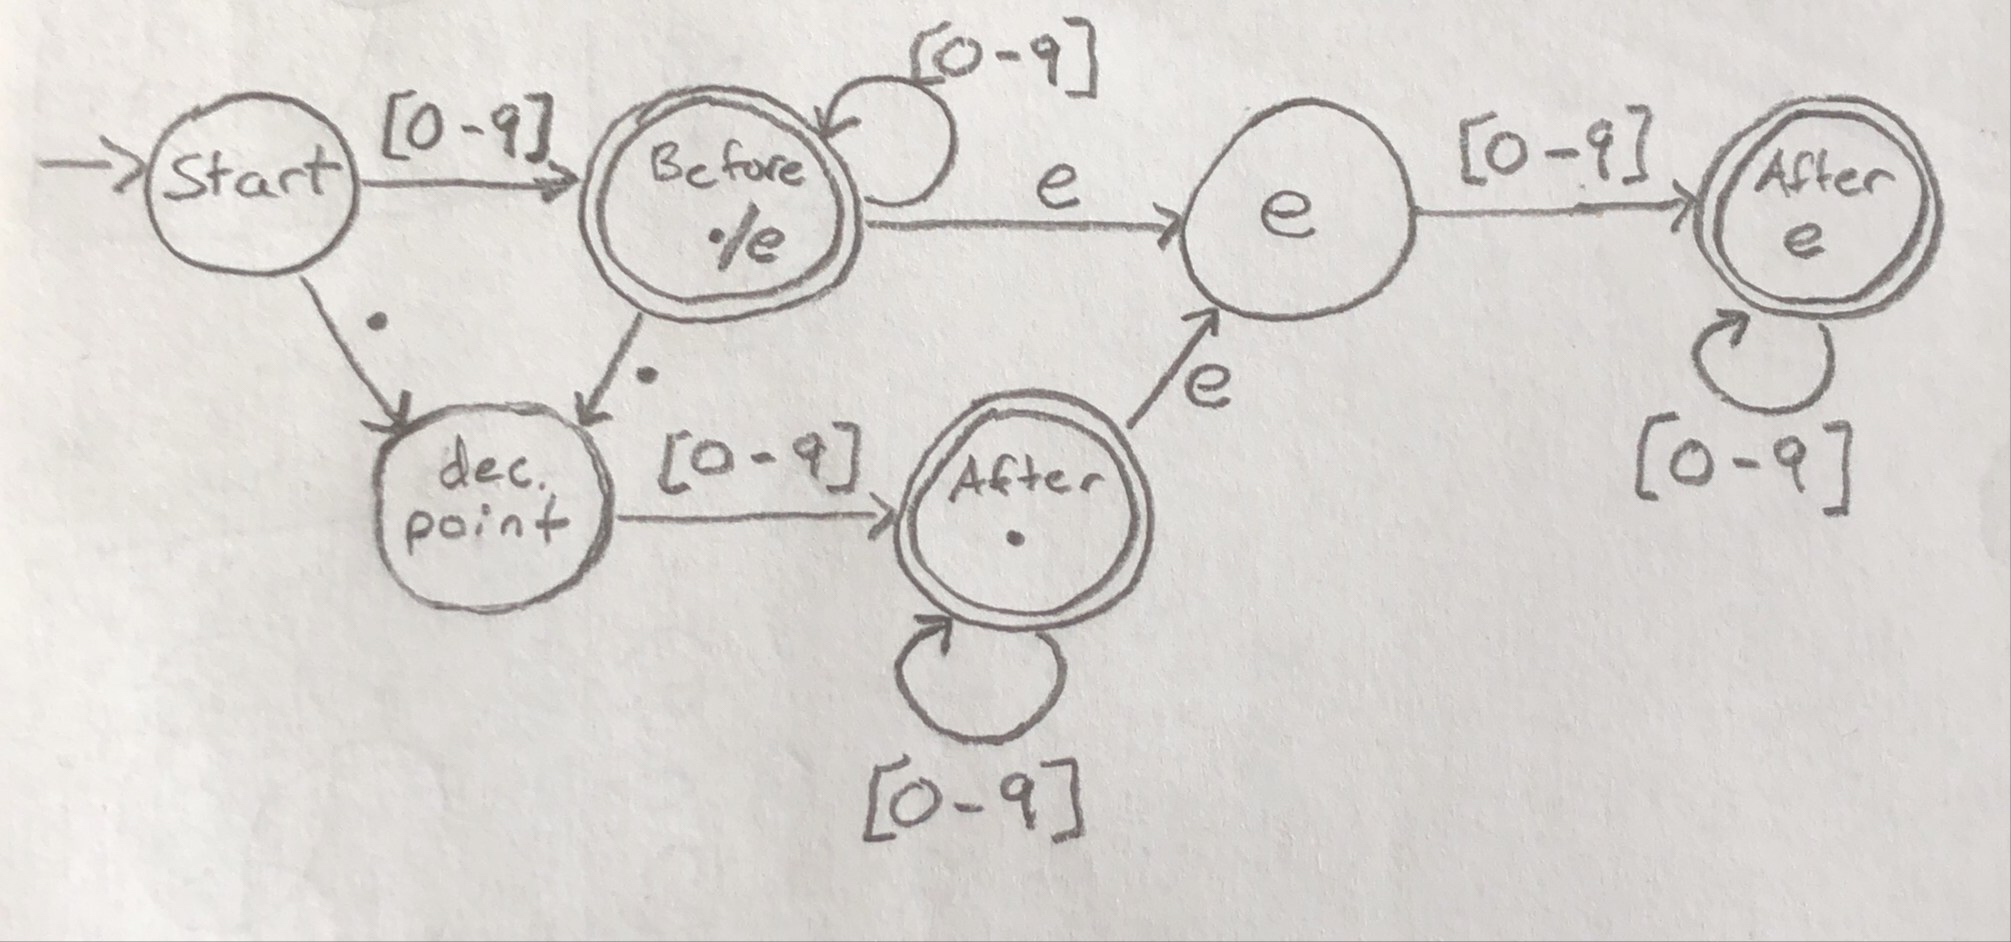 [0-9]
Start
[0-9]
Before
./e
e
e
[0-9]
After
e
.
.
e
dec.
point
[0-9]
After
.
[0-9]
[0-9]